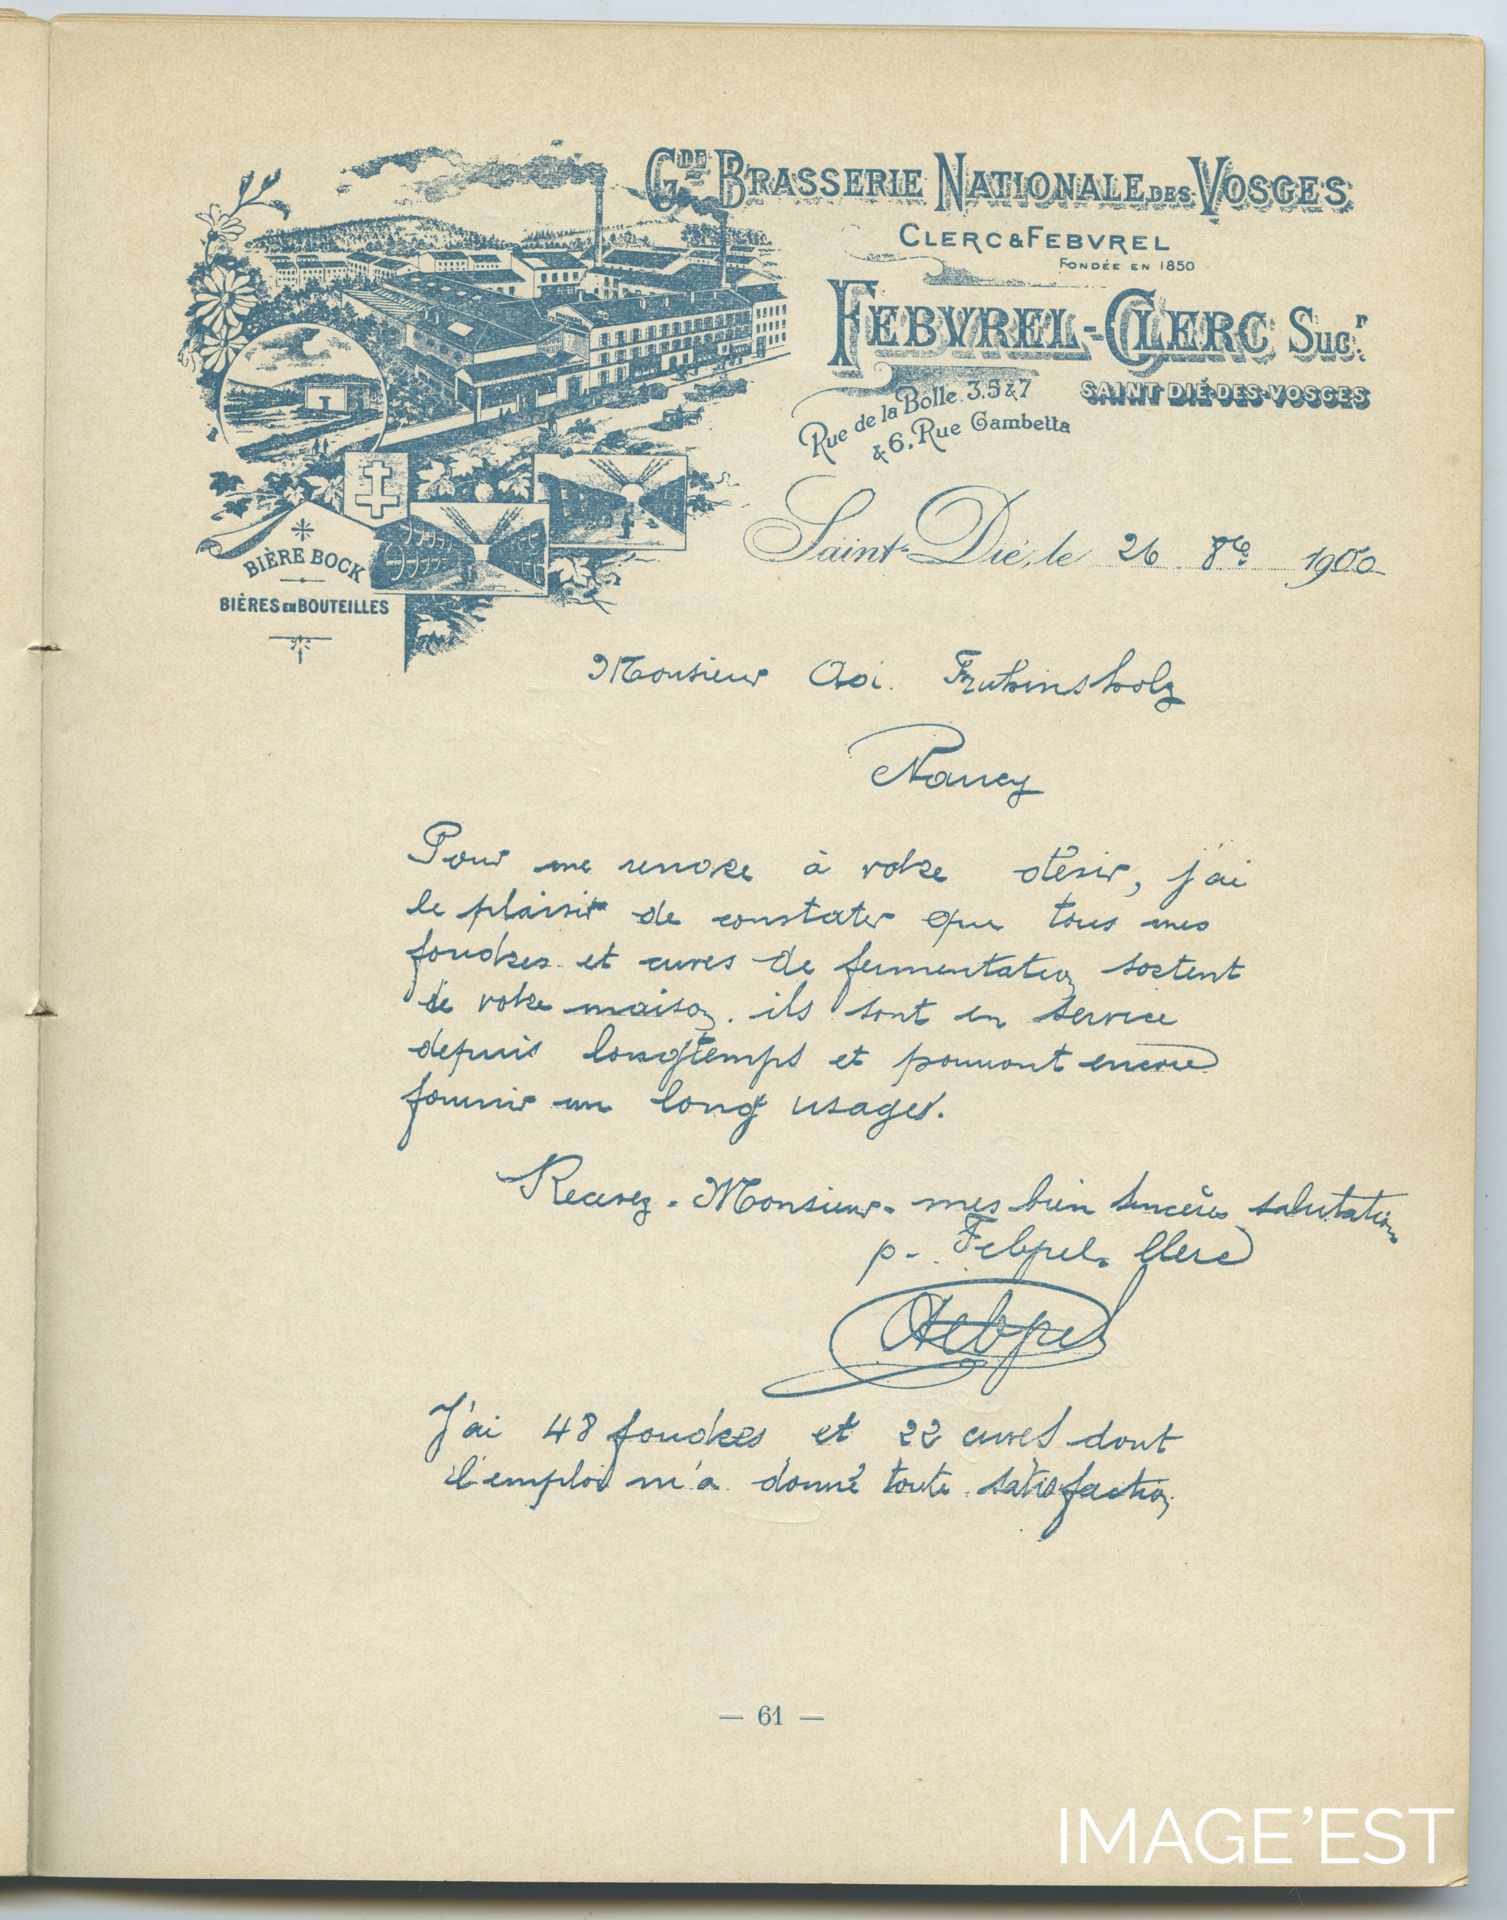 Gde Brasserie Nationale des Vosges
Clerc & Febvrel
Fondée en 1850
Febvrel-Clerc Sucr.
Saint Dié-des-Vosges
Rue de la Bolle. 3,5 & 7
& 6, Rue Gambetta
Bière Bock
Bières en Bouteilles
Saint-Dié, le 26 8bre 1900
Monsieur Ad. Fruhinsholz
Nancy
Pour me rendre à votre désir, j'ai
le plaisir de constater que tous mes
foudres et cuves de fermentation sortent
de votre maison. ils sont en service
depuis longtemps et pourront encore
fournir un long usages.
Recevez. Monsieur. mes bien sincères salutations
p. Febvrel. Clerc
Febvrel
J'ai 48 foudres et 22 cuves dont
l'emploi m'a donné toute satisfaction
— 61 —
IMAGE'EST